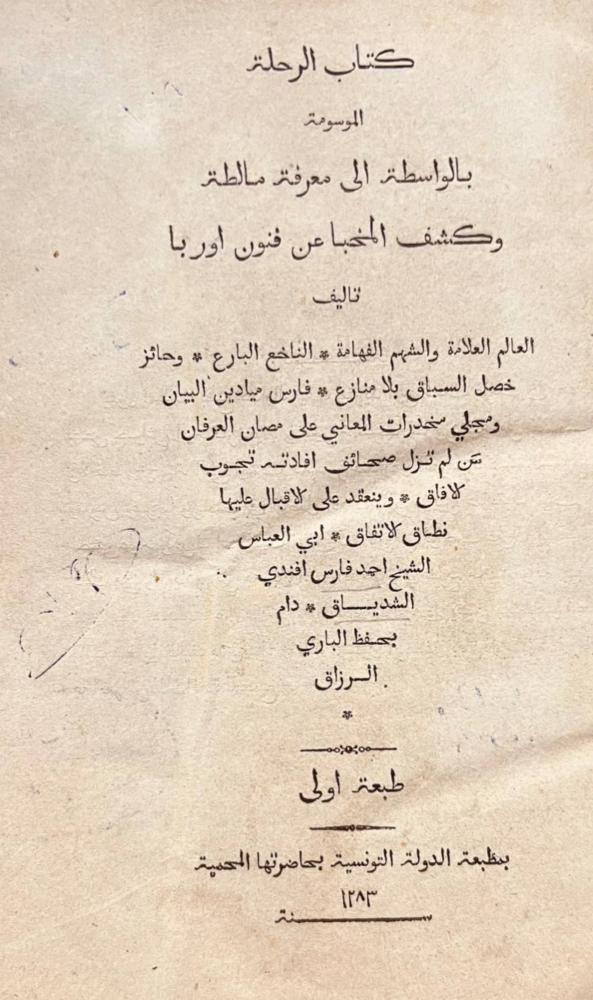 كتاب الرحلة
الموسومة
بالواسطة الى معرفة مالطة
وكشف المخبا عن فنون اوربا
تاليف
العالم العلامة والشهم الفهامة * الناخع البارع * وحائز
خصل السباق بلا منازع * فارس ميادين البيان
ومجلي مخدرات المعاني على مصان العرفان
من لم تزل صحائف افادته تجوب
كلافاق * وينعقد على كلاقبال عليها
نطاق كلاتفاق * ابي العباس
الشيخ احمد فارس افندي
الشديـــاق * دام
بحفظ الباري
الرزاق
*
طبعة اولى
بمطبعة الدولة التونسية بحاضرتها المحمية
١٢٨٣
سنة